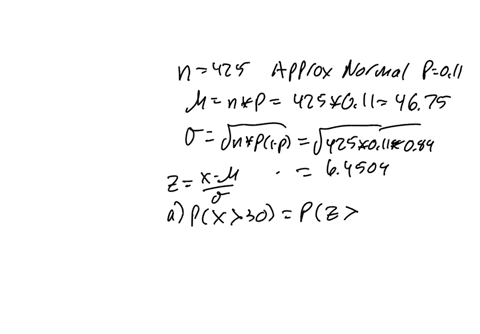 n=425 Approx Normal P=0.11
μ=n*P = 425*0.11=46.75
σ=√n*P(1-p) = √425*0.11*0.89
z = x-μ/σ = 6.4504
a) P(X>30) = P(Z>